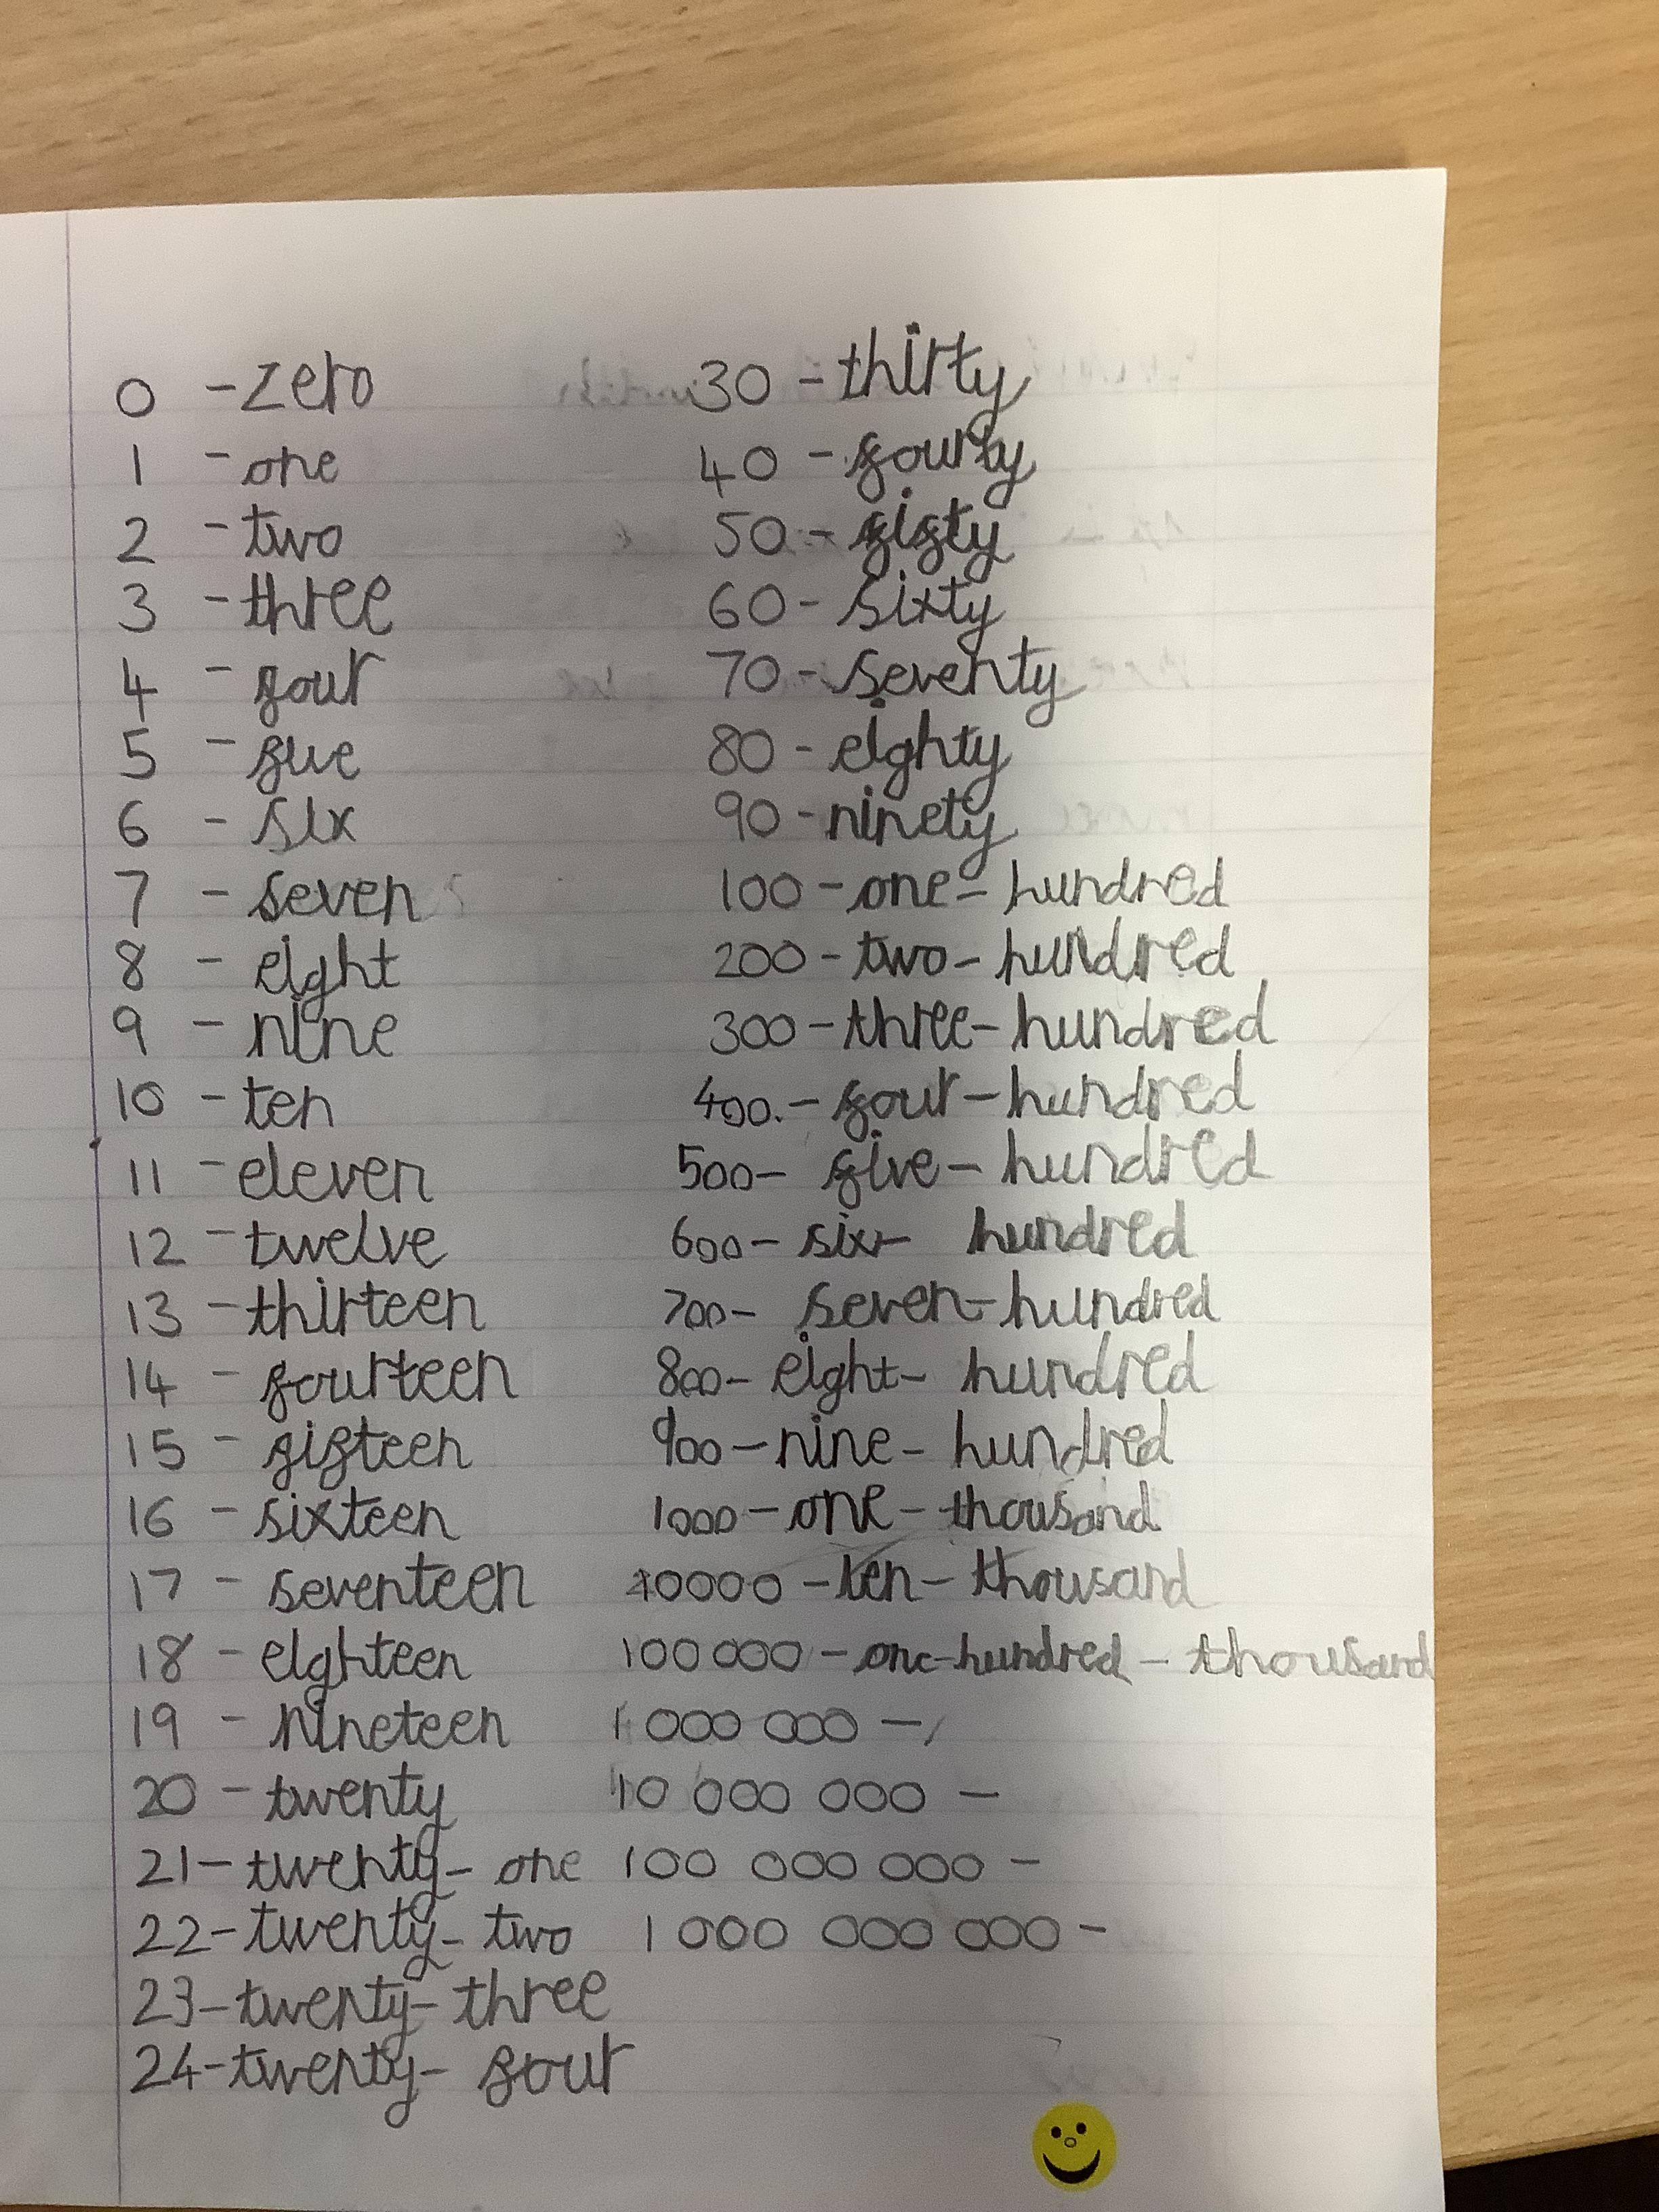 0 - zero
1 - one
2 - two
3 - three
4 - four
5 - five
6 - six
7 - seven
8 - eight
9 - nine
10 - ten
11 - eleven
12 - twelve
13 - thirteen
14 - fourteen
15 - fifteen
16 - sixteen
17 - seventeen
18 - eighteen
19 - nineteen
20 - twenty
21 - twenty - one
22 - twenty - two
23 - twenty - three
24 - twenty - four
30 - thirty
40 - fourty
50 - fifty
60 - sixty
70 - seventy
80 - eighty
90 - ninety
100 - one - hundred
200 - two - hundred
300 - three - hundred
400. - four - hundred
500 - five - hundred
600 - six - hundred
700 - seven - hundred
800 - eight - hundred
900 - nine - hundred
1000 - one - thousand
10000 - ten - thousand
100 000 - one - hundred - thousand
1 000 000 -
10 000 000 -
100 000 000 -
1 000 000 000 -